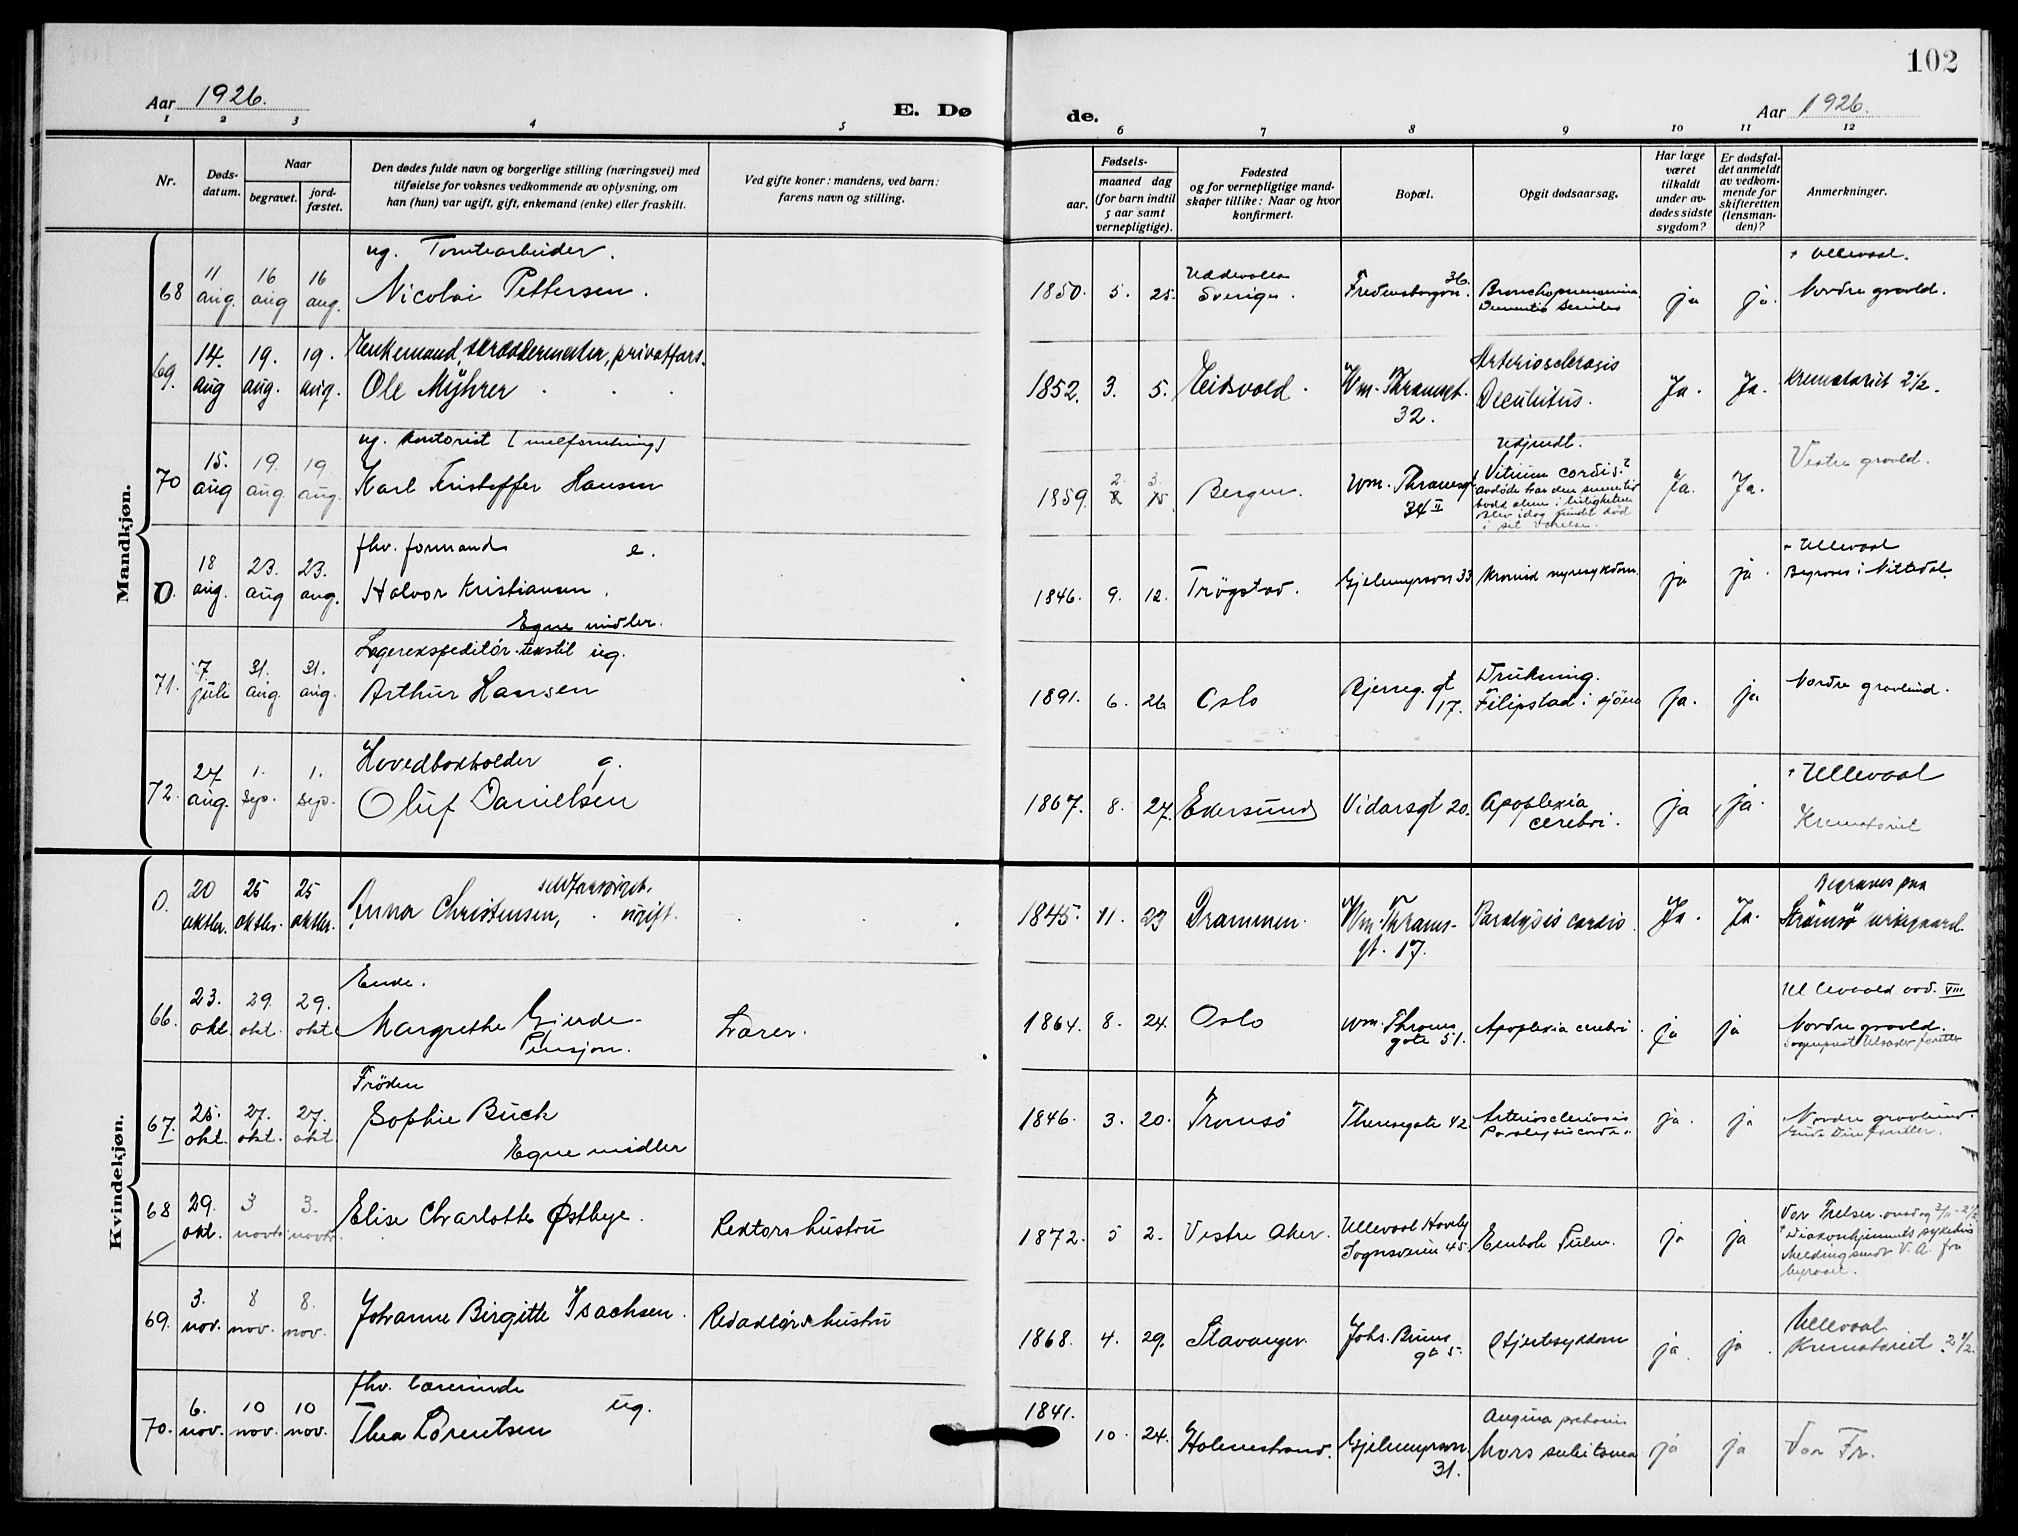 102
Aar 1926.
E. Døde.
Aar 1926.
1 2 3 4 5 6 7 8 9 10 11 12
Nr.
Døds-datum.
Naar
begravet.
jord-fæstet.
Den dødes fulde navn og borgerlige stilling (næringsvei) med
tilføielse for voksnes vedkommende av oplysning, om
han (hun) var ugift, gift, enkemand (enke) eller fraskilt.
Ved gifte koner: mandens, ved barn:
farens navn og stilling.
Fødsels-
aar.
maaned dag
(for barn indtil
5 aar samt
vernepligtige).
Fødested
og for vernepligtige mand-
skaper tillike: Naar og hvor
konfirmert.
Bopæl.
Opgit dødsaarsag.
Har læge
været
tilkaldt
under av-
dødes sidste
sygdom?
Er dødsfal-
det anmeldt
av vedkom-
mende for
skifteretten
(lensman-
den)?
Anmerkninger.
Mandkjøn.
68 11 aug. 16 aug 16 aug.
ug. Tomtearbeider.
Nicolai Pettersen.
1850. 5. 25. Uddevalla Sverige. 36. ja ja.
Bronchopneumonia
Dementia senilis
+ Ullevaal.
Nordre gravld.
69. 14. aug 19. aug. 19. aug.
Enkemand, skræddermester, privatfors.
Ole Myhrer
1852. 3. 5. Eidsvold. Wm. Thranesgt. 32.
Arteriosclerosis
Decubitus.
Ja. Ja. Krematoriet 2½.
70 15. aug 19. aug. 19 aug.
ug. kontorist (melforretning)
Karl Kristoffer Hansen
1859. 2. 3. Bergen. Wm. Thranesgt 34 II
Vitium cordis?
Ja. Ja.
Vestre gravld.
0. 18 aug. 23. aug 23. aug.
fhv. formand e.
Halvor Kristiansen.
Egne midler.
1846. 9. 12. Trøgstad. Gjelemyrsvn 33 Kronisk nyresykdom ja ja.
+ Ullevaal
Begraves i Nittedal.
71. 7. juli 31. aug. 31. aug.
Lagerekspeditør-tekstil ug.
Arthur Hansen
1891. 6. 26 Oslo Bjerreg. gt 17.
Drukning.
Filipstad i sjøen
Ja. ja Nordre gravlund.
72. 27 aug. 1. sep. 1. sep.
Hovedbokholder g.
Oluf Danielsen
1867. 8. 27. Ekersund Vidarsgt 20. Apoplexia cerebri. ja ja.
+ Ullevaal
Krematoriet
Kvindekjøn.
0. 20 oktbr. 25 oktbr. 25 oktbr.
selvforsørget.
Anna Christensen, ugift.
1845. 11. 23 Drammen. Wm. Thranes-gt. 17. Paralysis cordis. Ja. Ja.
Begraves paa
Strømsø kirkegaard.
66. 23. okt. 29. okt. 29. okt.
Enke.
Margrethe Gjerde
Pensjon.
Lærer.
1864. 8. 24. Oslo Wm. Thranes gate 51. Apoplexia cerebri. ja ja
Nordre gravld.
67. 25. okt. 27. okt. 27. okt.
Frøken
Sophie Buck
Egne midler
1846. 3. 20. Tromsø Theresegate 42
Arteriosclerosis
ja. ja Nordre gravlund.
68 29. okt. 3 novbr. 3. novbr.
Elise Charlotte Østbye.
Rektors hustru
1872. 5 2. Vestre Aker. Ullevaal Haveby
Sognsveien 45
Embole Pulm. ja ja
Vor Frelser. onsdag 3/11
69. 3. nov. 8 nov. 8. nov.
Johanne Birgitte Isachsen.
Redaktørs hustru
1868. 4. 29. Stavanger. Johs. Bruns gt 5. Hjertesykdom ja. ja
Ullevaal
Krematoriet. 2½.
70. 6. nov. 10 nov. 10 nov.
fhv. lærerinde ug.
Thea Lorentsen
1841. 10. 24. Holmestrand. Gjelemyrsvn. 31.
Angina pectoris
Mors subitanea
ja ja Vor Fr.